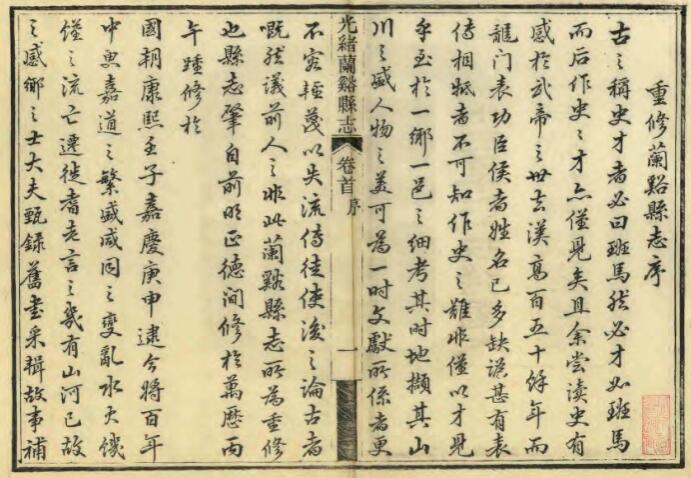 重修蘭谿縣志序
古之稱史才者必曰班馬然必才如班馬
而后作史之才亦僅見矣且余嘗讀史有
感於武帝之世去漢高百五十餘年而
龍门表功臣侯者姓名已多缺誤甚有表
傳相牴者不可知作史之難非僅以才見
乎至於一鄉一邑之細考其时地擷其山
川之盛人物之美可為一时文獻所係者更
光緒蘭谿縣志 卷首 序 一
不容輕蔑以失流傳徒使後之論古者
嘅然議前人之非此蘭谿縣志所為重修
也縣志肇自前明正德间修於萬歷丙
午踵修於
國朝康熙壬子嘉慶庚申逮今將百年
中更嘉道之繁盛咸同之變亂水火饑
饉之流亡遷徙耆老言之幾有山河已故
之感鄉之士大夫甄錄舊書采輯故事補